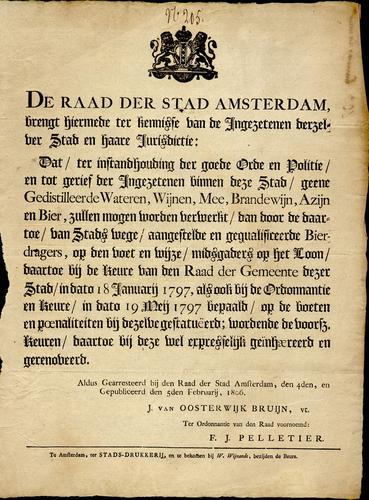 No 205.
DE RAAD DER STAD AMSTERDAM,
brengt hiermede ter kennisse van de Ingezetenen derzel-
ver Stad en haare Jurisdictie:
Dat/ ter instandhouding der goede Orde en Politie/
en tot gerief der Ingezetenen binnen deze Stad/ geene
Gedistilleerde Wateren, Wijnen, Mee, Brandewijn, Azijn
en Bier, zullen mogen worden verwerkt/ dan door de daar-
toe/ van Stads wege/ aangestelde en gequalificeerde Bier-
dragers, op den voet en wijze/ midsgaders op het Loon/
daartoe bij de Keure van den Raad der Gemeente dezer
Stad/ in dato 18 Januarij 1797, als ook bij de Ordonnantie
en Keure/ in dato 19 Meij 1797 bepaald/ op de boeten
en pœnaliteiten bij dezelve gestatuëerd; wordende de voorsz.
Keuren/ daartoe bij deze wel expresselijk geïnhæreerd en
gerenoveerd.
Aldus Gearresteerd bij den Raad der Stad Amsterdam, den 4den, en
Gepubliceerd den 5den Februarij, 1806.
J. VAN OOSTERWIJK BRUIJN, vt.
Ter Ordonnantie van den Raad voornoemd:
F. J. PELLETIER.
Te Amsterdam, ter STADS-DRUKKERIJ, en te bekomen bij W. Wijnands, bezijden de Beurs.